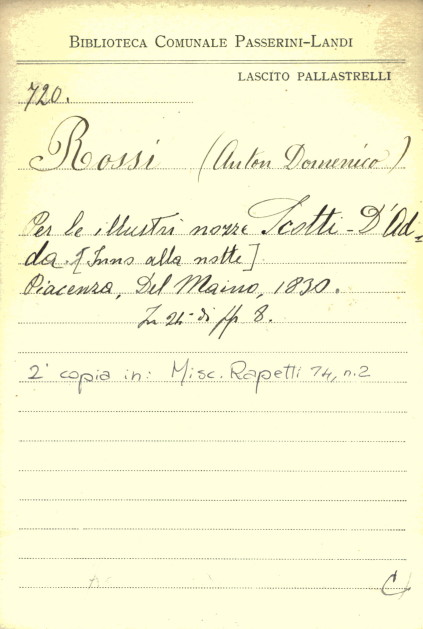 BIBLIOTECA COMUNALE PASSERINI-LANDI
LASCITO PALLASTRELLI
720.
Rossi (Anton Domenico)
Per le illustri nozze Scotti-D'Ad=
da. [Inno alla notte]
Piacenza, Del Maino, 1830.
In di pp 8.
2ª copia in: Misc. Rapetti 74, n.2